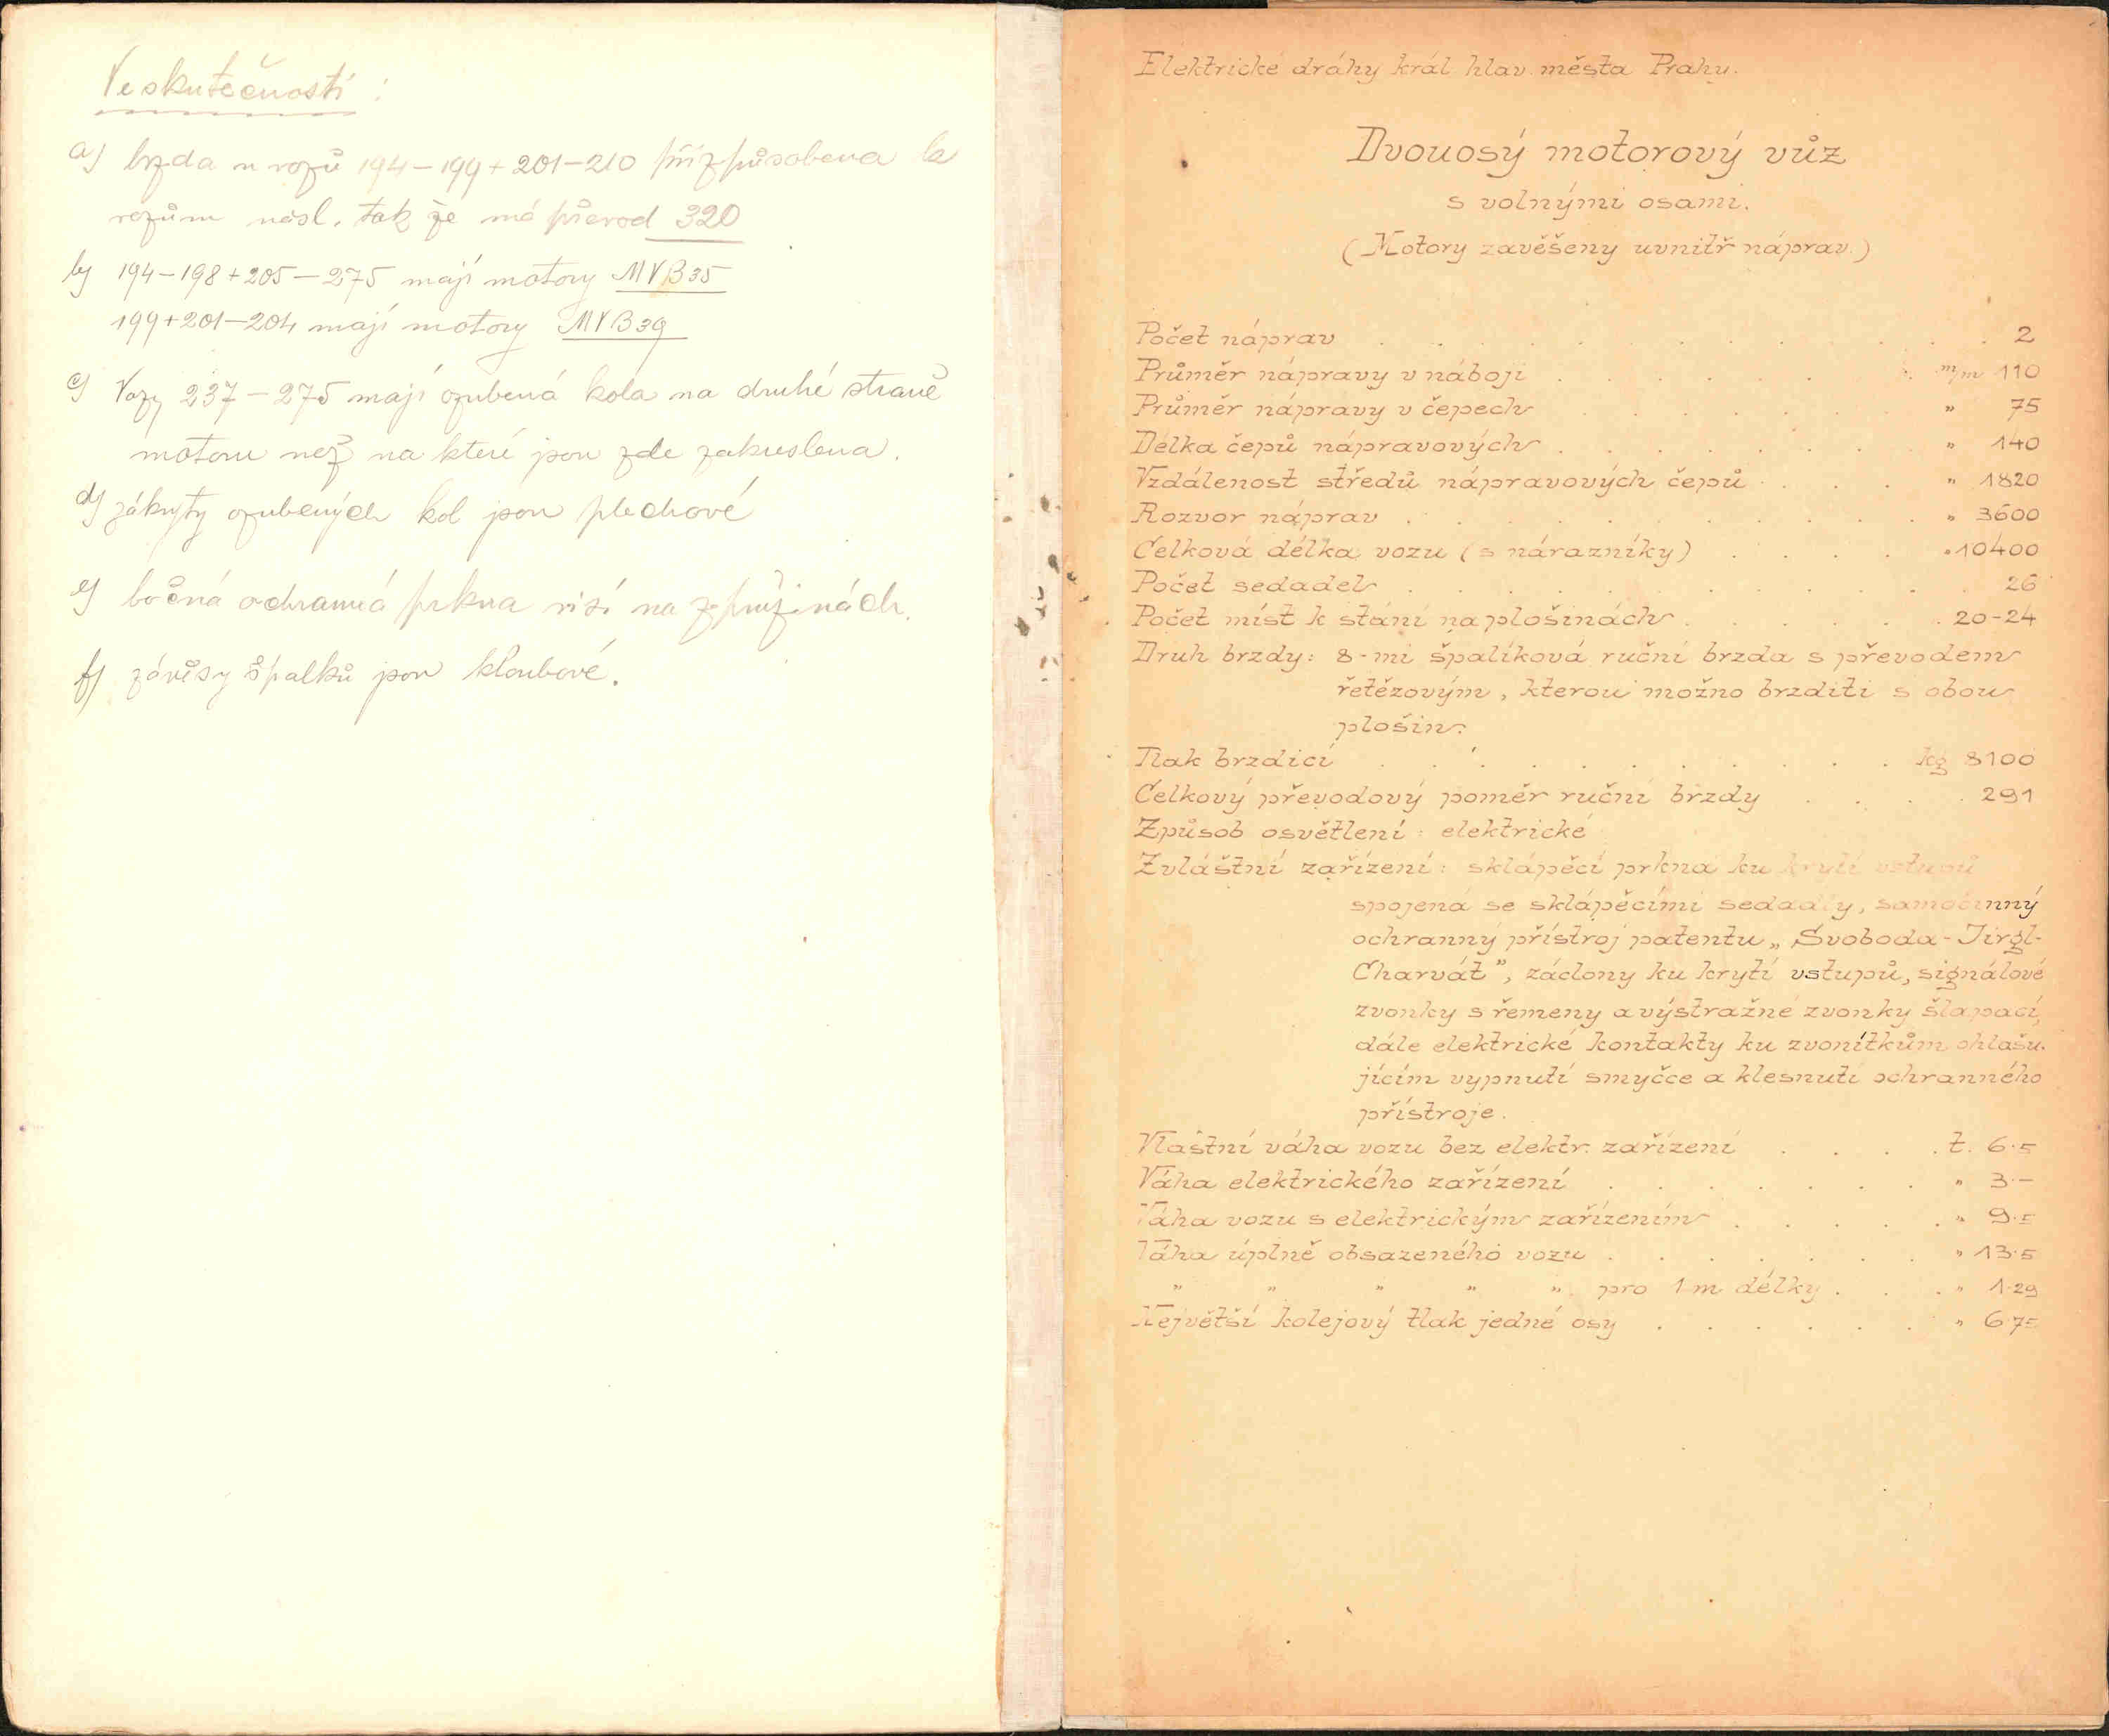 Ve skutečnosti :
a) brzda u vozů 194-199+201-210 přizpůsobena k
vozům násl. tak že má převod 320
b) 194-198+205-275 mají motory MVB35
199+201-204 mají motory MVB39
c) Vozy 237-275 mají ozubená kola na druhé straně
motoru než na které jsou zde zakreslena.
d) zákryty ozubených kol jsou plechové
e) bočná ochranná prkna visí na zpružinách.
f) závěsy špalků jsou kloubové.
Elektrické dráhy král. hlav. města Prahy.
Dvouosý motorový vůz
s volnými osami.
(Motory zavěšeny uvnitř náprav.)
Počet náprav . . . . . . . . . . . . 2
Průměr nápravy v náboji . . . . . . . m/m 110
Průměr nápravy v čepech . . . . . . " 75
Délka čepů nápravových . . . . . . . " 140
Vzdálenost středů nápravových čepů . . . " 1820
Rozvor náprav . . . . . . . . . . " 3600
Celková délka vozu (s nárazníky) . . . . " 10400
Počet sedadel . . . . . . . . . . . 26
Počet míst k stání na plošinách . . . . . . 20-24
Druh brzdy: 8-mi špalíková ruční brzda s převodem
řetězovým, kterou možno brzditi s obou
plošin.
Tlak brzdicí . . . . . . . . . . . kg 8100
Celkový převodový poměr ruční brzdy . . . . 291
Způsob osvětlení: elektrické
Zvláštní zařízení: sklápěcí prkna ku krytí vstupů
spojená se sklápěcími sedadly, samočinný
ochranný přístroj patentu „Svoboda-Jirgl-
Charvát", záclony ku krytí vstupů, signálové
zvonky s řemeny a výstražné zvonky šlapací,
dále elektrické kontakty ku zvonítkům ohlašu-
jícím vypnutí smyčce a klesnutí ochranného
přístroje.
Vlastní váha vozu bez elektr. zařízení . . . . t. 6·5
Váha elektrického zařízení . . . . . . . " 3·-
Váha vozu s elektrickým zařízením . . . . . " 9·5
Váha úplně obsazeného vozu . . . . . . . " 13·5
" " " " " pro 1 m délky . . . " 1·29
Největší kolejový tlak jedné osy . . . . . . " 6·75